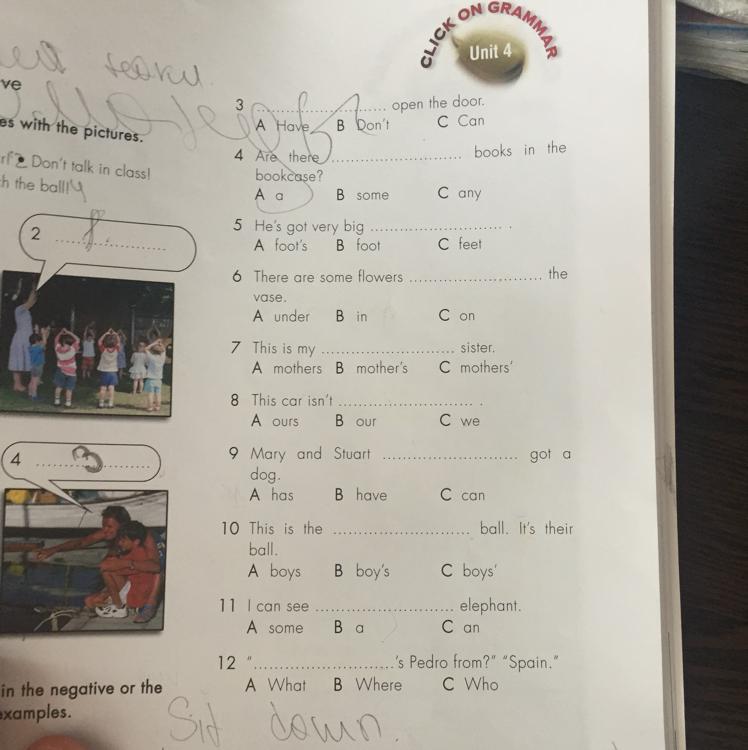 CLICK ON GRAMMAR
Unit 4
ve
es with the pictures.
Don't talk in class!
h the ball!
2
4
in the negative or the
examples.
3 .............................. open the door.
A Have B Don't C Can
4 Are there .............................. books in the
bookcase?
A a B some C any
5 He's got very big .............................. .
A foot's B foot C feet
6 There are some flowers .............................. the
vase.
A under B in C on
7 This is my .............................. sister.
A mothers B mother's C mothers'
8 This car isn't .............................. .
A ours B our C we
9 Mary and Stuart .............................. got a
dog.
A has B have C can
10 This is the .............................. ball. It's their
ball.
A boys B boy's C boys'
11 I can see .............................. elephant.
A some B a C an
12 "..............................'s Pedro from?" "Spain."
A What B Where C Who
Sit down.